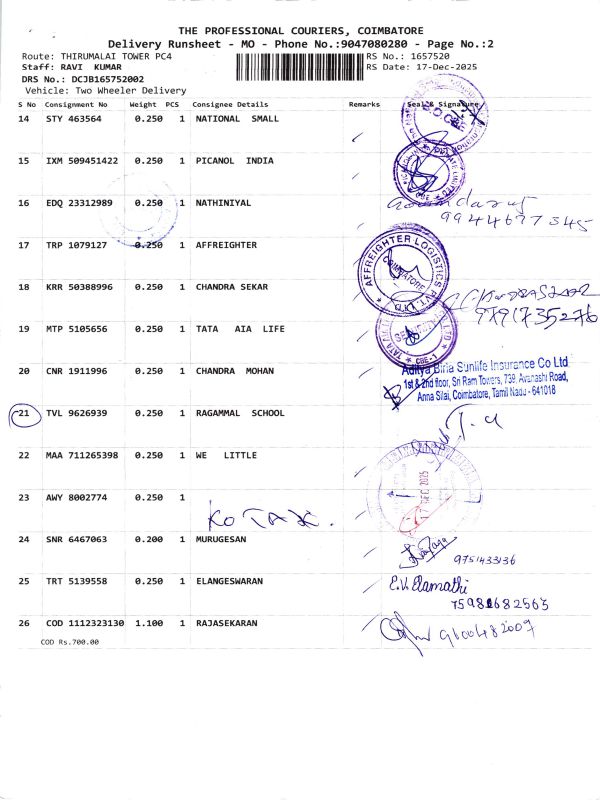 THE PROFESSIONAL COURIERS, COIMBATORE
Delivery Runsheet - MO - Phone No.:9047080280 - Page No.:2
Route: THIRUMALAI TOWER PC4 RS No.: 1657520
Staff: RAVI KUMAR RS Date: 17-Dec-2025
DRS No.: DCJB165752002
Vehicle: Two Wheeler Delivery
S No Consignment No Weight PCS Consignee Details Remarks Seal & Signature
14 STY 463564 0.250 1 NATIONAL SMALL
15 IXM 509451422 0.250 1 PICANOL INDIA
16 EDQ 23312989 0.250 1 NATHINIYAL
9944677345
17 TRP 1079127 0.250 1 AFFREIGHTER
AFFREIGHTER LOGISTICS PVT. LTD.
COIMBATORE
18 KRR 50388996 0.250 1 CHANDRA SEKAR
9791735276
19 MTP 5105656 0.250 1 TATA AIA LIFE
CBE-1
20 CNR 1911996 0.250 1 CHANDRA MOHAN
Aditya Birla Sunlife Insurance Co Ltd
1st & 2nd floor, Sri Ram Towers, 739, Avanashi Road,
Anna Silai, Coimbatore, Tamil Nadu - 641018
21 TVL 9626939 0.250 1 RAGAMMAL SCHOOL
22 MAA 711265398 0.250 1 WE LITTLE
23 AWY 8002774 0.250 1
KOTAK.
17 DEC 2025
24 SNR 6467063 0.200 1 MURUGESAN
9751433136
25 TRT 5139558 0.250 1 ELANGESWARAN
E.V. Elamathi
7598682565
26 COD 1112323130 1.100 1 RAJASEKARAN
9600482009
COD Rs.700.00